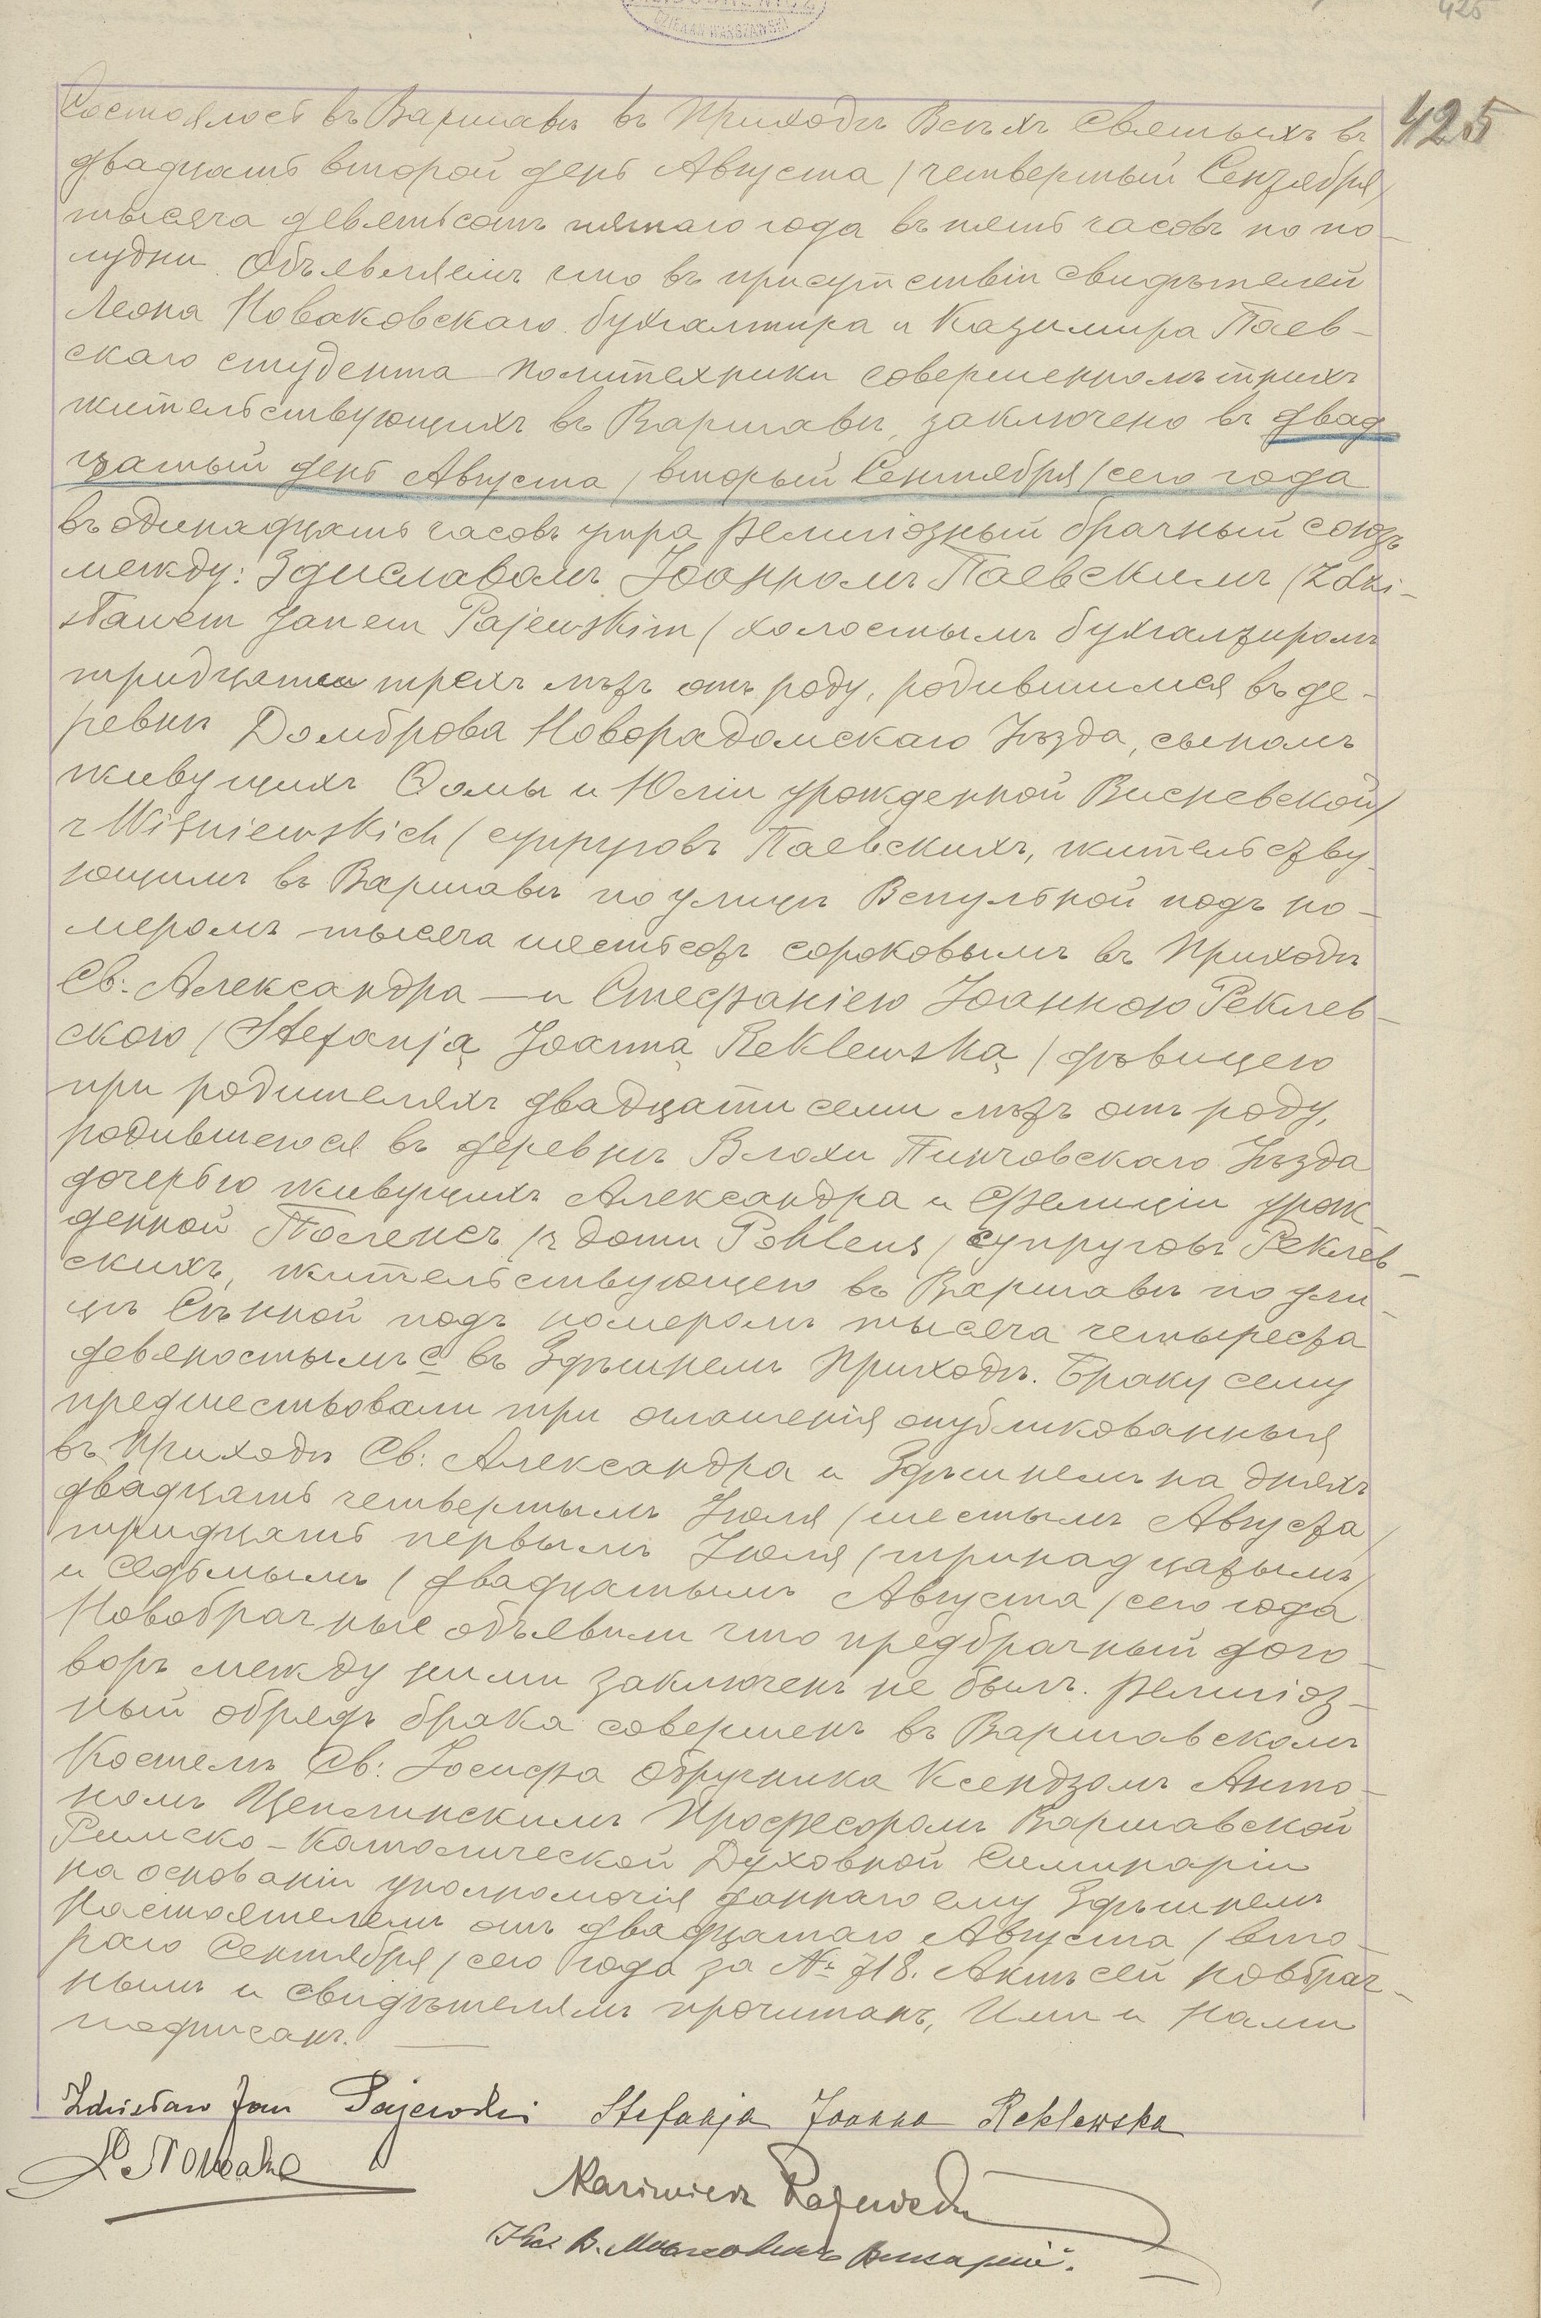 425
DZIEKAN WARSZAWSKI
Состоялось въ Варшавѣ въ Приходѣ Всѣхъ Святыхъ въ 425
двадцать второй день Августа /четвертый Сентября/
тысяча девятьсотъ пятаго года въ пять часовъ по по-
лудни. Объявляемъ что въ присутствіи свидѣтелей
Леона Новаковскаго бухгалтира и Казимира Паев-
скаго студента политехники совершеннолѣтнихъ
жительствующихъ въ Варшавѣ, заключено въ двад
цатый день Августа /вторый Сентября/ сего года
въ одинадцать часовъ утра религіозный брачный союзъ
между: Здиславомъ Іоанномъ Паевскимъ (Zdzi-
sławem Janem Pajewskim/ холостымъ бухгалтиромъ
тридцати трехъ лѣтъ отъ роду, родившимся въ де-
ревнѣ Домброва Новорадомскаго Уѣзда, сыномъ
живущихъ Ѳомы и Юліи урожденной Висневской/
z Wiśniewskich/ супруговъ Паевскихъ, жительству
ющимъ въ Варшавѣ по улицѣ Вспульной подъ но-
меромъ тысяча шестьсотъ сороковымъ въ Приходѣ
Св: Александра — и Стефаніею Іоанною Реклев-
скою /Stefanją Joanną Reklewską/ дѣвицею
при родителяхъ двадцати семи лѣтъ отъ роду,
родившеюся въ деревнѣ Влохи Пинчовскаго Уѣзда
дочерью живущихъ Александра и Фелиціи урож-
денной Поленсъ /z domu Pohlens/ супруговъ Реклев-
скихъ, жительствующею въ Варшавѣ по ули-
цѣ Сѣнной подъ номеромъ тысяча четыреста
девяностымъ с въ Здѣшнемъ Приходѣ. Браку сему
предшествовали три оглашенія опубликованныя
въ Приходѣ Св: Александра и Здѣшнемъ на дняхъ
двадцать четвертымъ Іюля /шестымъ Августа/
тридцать первымъ Іюля /тринадцатымъ/
и седьмымъ /двадцатымъ Августа/ сего года
Новобрачные объявили что предбрачный дого-
воръ между ними заключенъ не былъ. Религіоз-
ный обрядъ брака совершенъ въ Варшавскомъ
Костелѣ Св: Іосифа Обручника Ксендзомъ Анто-
номъ Цепглинскимъ Професоромъ Варшавской
Римско-Католической Духовной Семинаріи
на основаніи уполномочія даннаго ему Здѣшнемъ
Настоятелемъ отъ двадцатаго Августа /вто-
раго Сентября/ сего года за № 718. Актъ сей новобрач-
нымъ и свидѣтелямъ прочитанъ, Ими и Нами
подписанъ. —
Zdzisław Jan Pajewski Stefanja Joanna Reklewska
Kazimierz Pajewski